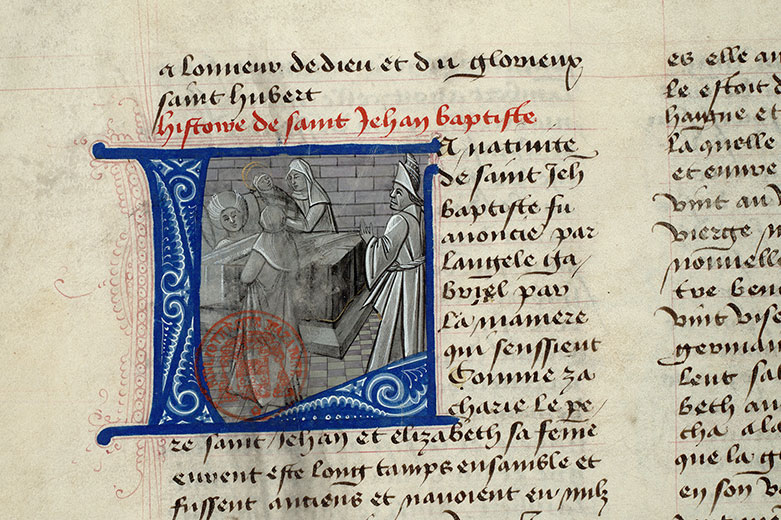 a lonneur de dieu et du glorieux
saint hubert
histoire de saint Jehan baptiste
La nativite
de saint Jeh
baptiste fu
anoncie par
langele ga
briel par
la maniere
qui senssient
Comme za
charie le pe-
re saint Jehan et elizabeth sa feme
eurent este long tamps ensamble et
fussent anciens et navoient eu nulz
es elle
le estoit
haigne et
la quelle
et
vint au
vierge
nouvelle
tre
vint
germai
lent sal
beth au
cha a la
que la
en son